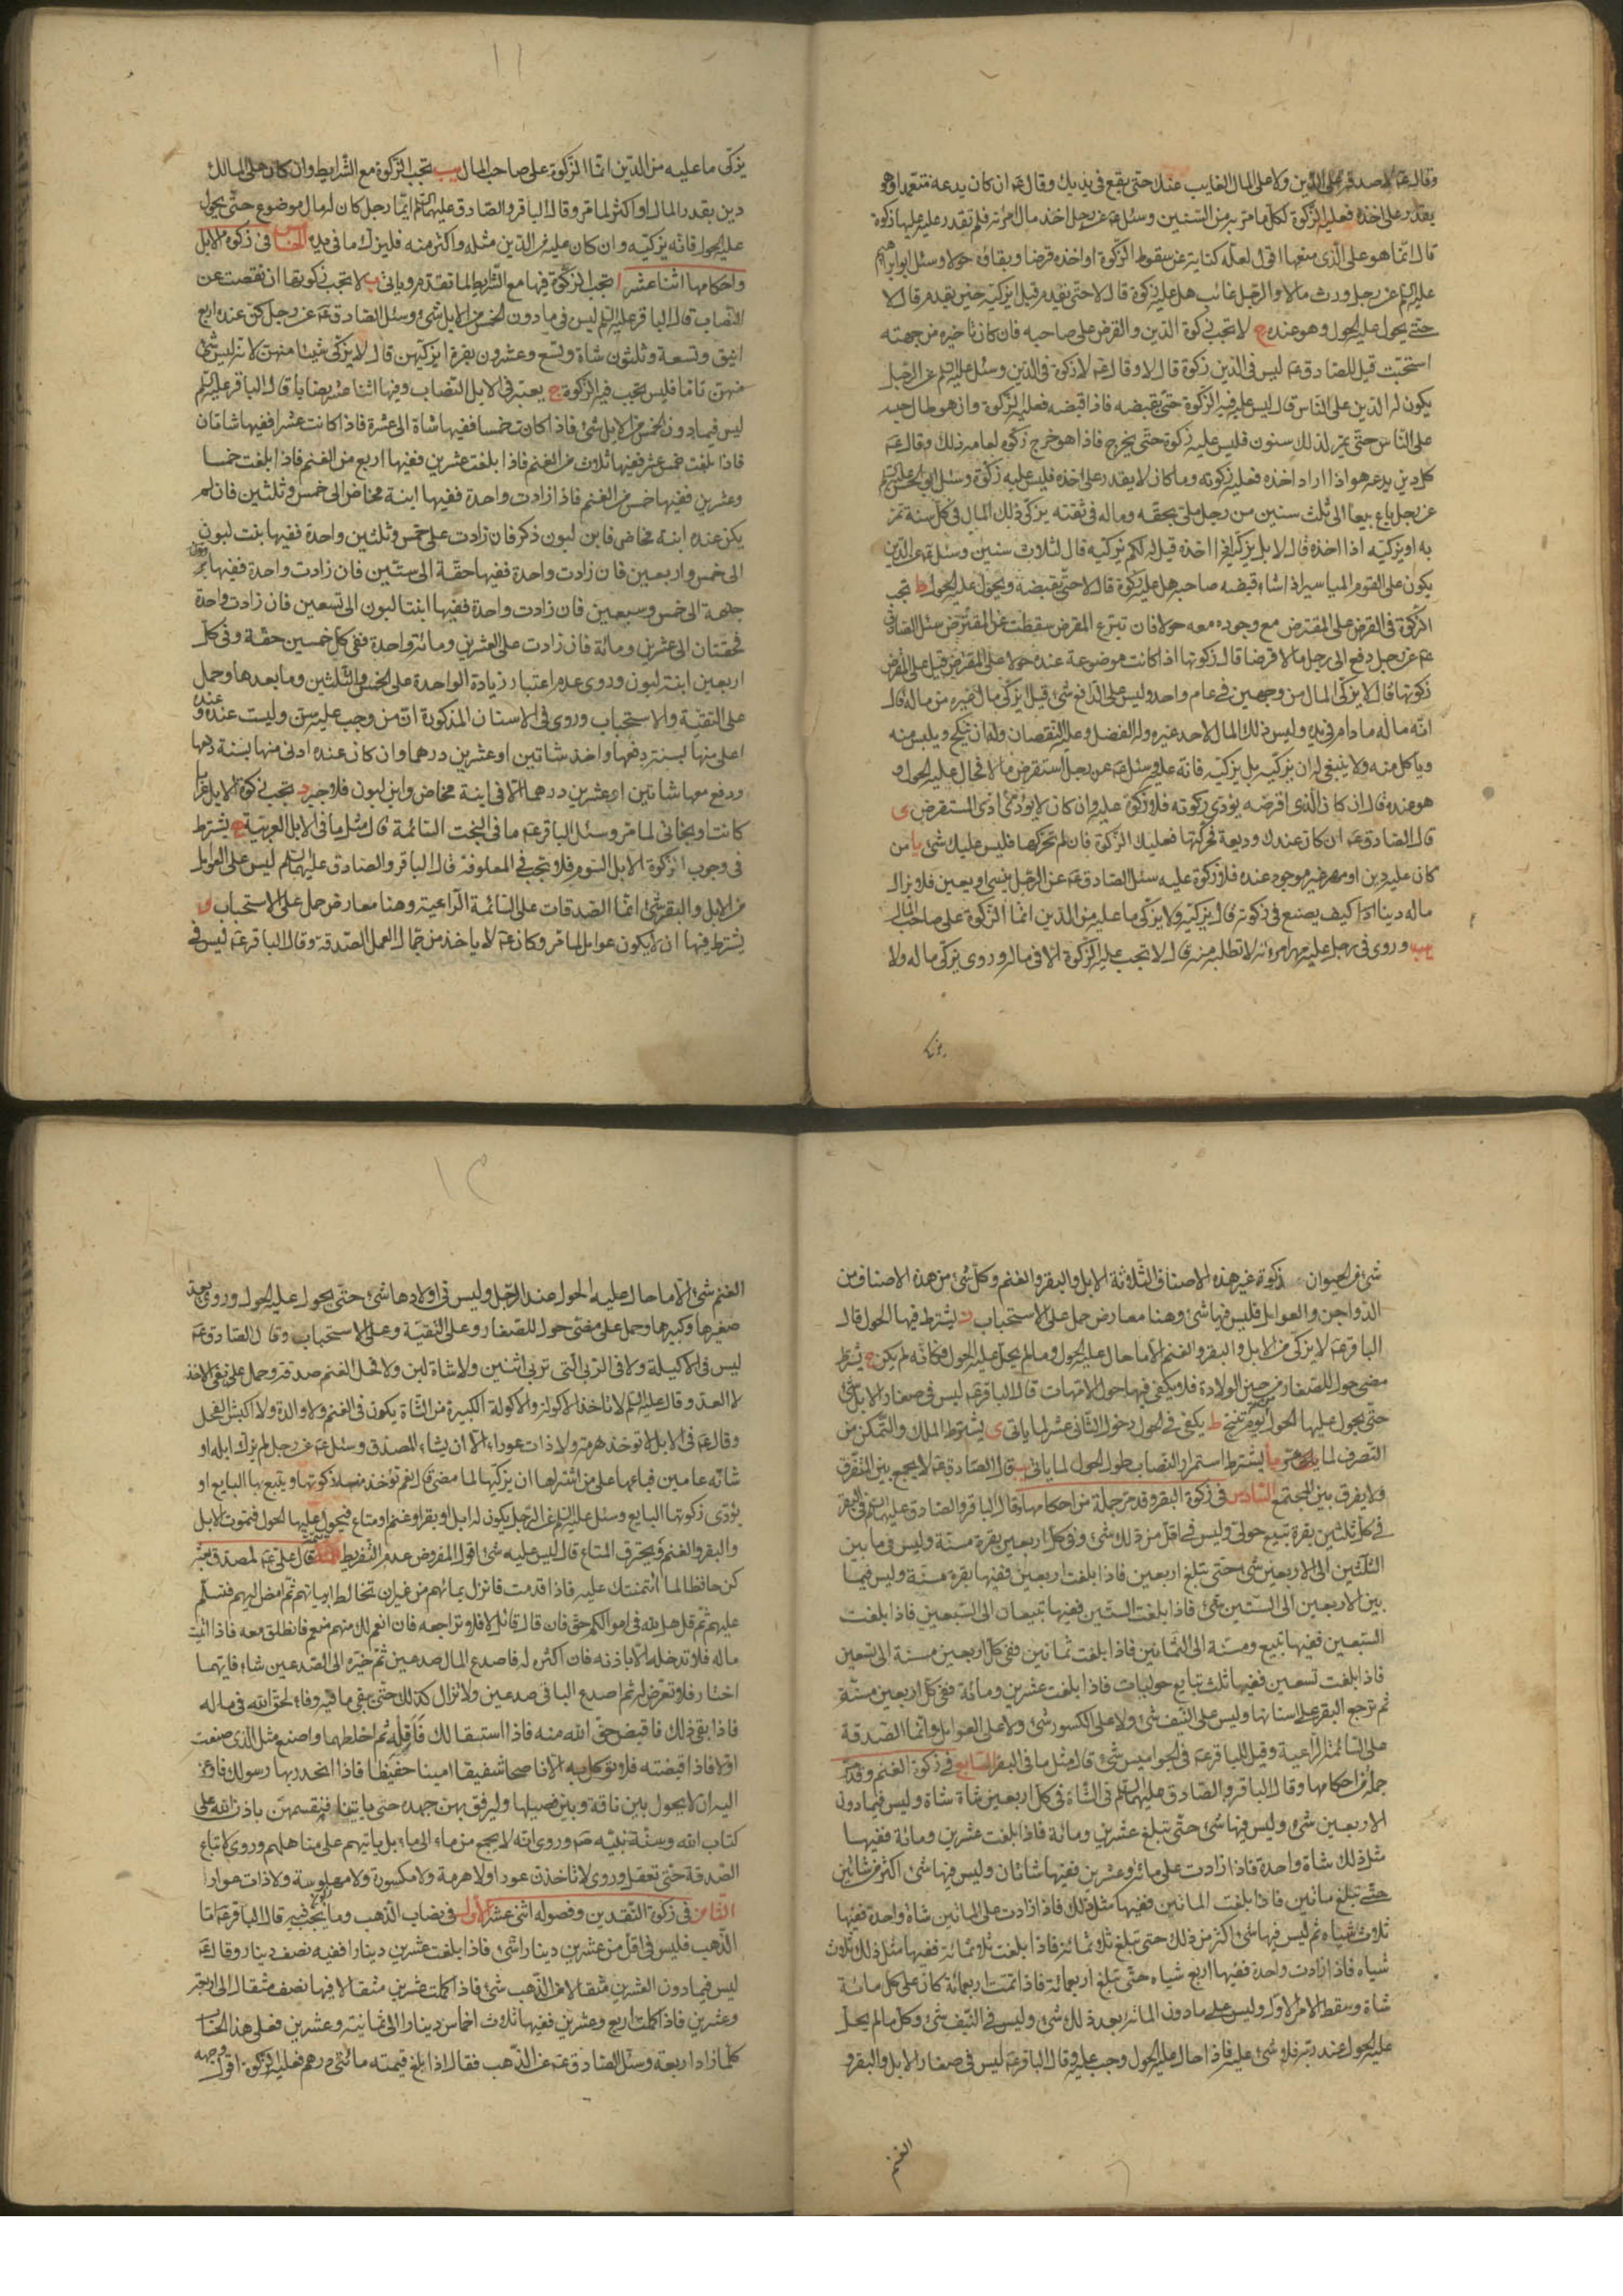 وقال ع لا صدقة على الدين ولا على المال الغايب عنك حتى يقع في يديك وقال ع ان كان يدعه متعمدا وهو
يقدر على اخذه فعليه الزكوة لكل ما مر به من السنين وسئل ع عن رجل اخذ مال امرئة فلم تقدر عليه عليها زكوة
قال انما هو على الذي منعها اقول لعله كناية عن سقوط الزكوة او اخذه قرضا وبقائه حولا وسئل ابو ابراهيم
عليه السلم عن رجل ورث مالا والرجل غائب هل عليه زكوة قال لا حتى يقدم قيل ايزكيه حين يقدم قال لا
حتى يحول عليه الحول وهو عنده ح لا تجب زكوة الدين والقرض على صاحبه فان كان تاخيره من جهته
استحبت قيل للصادق ع ليس في الدين زكوة قال لا وقال ع لا زكوة في الدين وسئل عليه السلم عن الرجل
يكون له الدين على الناس قال ليس عليه فيه الزكوة حتى يقبضه فاذا قبضه فعليه الزكوة وان هو طال حبسه
على الناس حتى يمر لذلك سنون فليس عليه زكوة حتى يخرج فاذا هو خرج زكوه لعامه ذلك وقال ع
كل دين يدعه هو اذا اراد اخذه فعليه زكوته وما كان لا يقدر على اخذه فليس عليه زكوة وسئل ابو الحسن عليه السلم
عن رجل باع بيعا الى ثلث سنين من رجل ملي بحقه وماله في ثقته يزكي ذلك المال في كل سنة تمر
به او يزكيه اذا اخذه قال لا بل يزكيه اذا اخذه قيل له لكم يزكيه قال لثلاث سنين وسئل ع عن الدين
يكون على القوم المياسير اذا شاء قبضه صاحبه هل عليه زكوة قال لا حتى يقبضه ويحول عليه الحول ط تجب
الزكوة في القرض على المقترض مع وجوده معه حولا فان تبرع المقرض سقطت عن المقترض سئل الصادق
ع عن رجل دفع الى رجل مالا قرضا قال زكوتها اذا كانت موضوعة عنده حولا على المقترض قيل على المقرض
زكوتها قال لا يزكى المال من وجهين في عام واحد وليس على الدافع شئ قيل ايزكي مال غيره من ماله قال
انه ماله ما دام في يده وليس ذلك المال لاحد غيره وله الفضل وعليه النقصان وله ان ينكح ويلبس منه
وياكل منه ولا ينبغي له ان يزكيه بل يزكيه فانه عليه وسئل ع عن رجل استقرض مالا فحال عليه الحول و
هو عنده قال ان كان الذي اقرضه يؤدي زكوته فلا زكوة عليه وان كان لا يؤدي ادى المستقرض ى
قال الصادق ع ان كان عندك وديعة تحركها فعليك الزكوة فان لم تحركها فليس عليك شئ يا من
كان عليه دين او مهر غير موجود عنده فلا زكوة عليه سئل الصادق ع عن الرجل ينسي او يعين فلا يزال
ماله دينا كيف يصنع في زكوته قال يزكيه ولا يزكي ما عليه من الدين انما الزكوة على صاحب المال
يب وروى في رجل عليه مهر امرئته لا تطلبه منه قال لا تجب عليه الزكوة الا في ماله وروى يزكى ماله ولا
يزكى
١١
يزكى ما عليه من الدين انما الزكوة على صاحب المال يب تجب الزكوة مع الشرايط وان كان على المالك
دين بقدر المال او اكثر لما مر وقال الباقر والصادق عليهما السلم ايما رجل كان له مال موضوع حتى يحول
عليه الحول فانه يزكيه وان كان عليه من الدين مثله واكثر منه فليزك ما في يده الخامس في زكوة الابل
واحكامها اثنا عشر ا تجب الزكوة فيها مع الشرايط لما تقدم وياتي ب لا تجب زكوتها ان نقصت عن
النصاب قال الباقر عليه السلم ليس في ما دون الخمس من الابل شئ وسئل الصادق ع عن رجل كن عنده اربع
اينق وتسعة وثلثون شاة وتسع وعشرون بقرة ايزكيهن قال لا يزكى شيئا منهن لانه ليس شئ
منهن تاما فليس تجب فيه الزكوة ج يعتبر في الابل النصاب وفيها اثنا عشر نصابا قال الباقر عليه السلم
ليس فيما دون الخمس من الابل شئ فاذا كانت خمسا ففيها شاة الى عشرة فاذا كانت عشرا ففيها شاتان
فاذا بلغت خمس عشر ففيها ثلاث من الغنم فاذا بلغت عشرين ففيها اربع من الغنم فاذا بلغت خمسا
وعشرين ففيها خمس من الغنم فاذا زادت واحدة ففيها ابنة مخاض الى خمس وثلثين فان لم
يكن عنده ابنة مخاض فابن لبون ذكر فان زادت على خمس وثلثين واحدة ففيها بنت لبون
الى خمس واربعين فان زادت واحدة ففيها حقة الى ستين فان زادت واحدة ففيها
جذعة الى خمس وسبعين فان زادت واحدة ففيها ابنتا لبون الى تسعين فان زادت واحدة
فحقتان الى عشرين ومائة فان زادت على العشرين ومائة واحدة ففي كل خمسين حقة وفي كل
اربعين ابنة لبون وروى عدم اعتبار زيادة الواحدة على الخمس والثلثين وما بعدها وحمل
على التقية والاستحباب وروى في الاسنان المذكورة ان من وجب عليه سن وليست عنده و عنده
اعلى منها بسنة دفعها واخذ شاتين او عشرين درهما وان كان عنده ادنى منها بسنة دفعها
ودفع معها شاتين او عشرين درهما الا في ابنة مخاض وابن لبون فلا جبر د تجب زكوة الابل عرابا
كانت او بخاتي لما مر وسئل الباقر ع ما في البخت السائمة قال مثل ما في الابل العربية ه يشترط
في وجوب الزكوة الابل السوم فلا تجب في المعلوفة قال الباقر والصادق عليهما السلم ليس على العوامل
من الابل والبقر شئ انما الصدقات على السائمة الراعية وهنا معارض حمل على الاستحباب و
يشترط فيها ان لا يكون عوامل لما مر وكان ع لا ياخذ من جمال العمل الصدقة وقال الباقر ع ليس في
شئ من الحيوان زكوة غير هذه الاصناف الثلاثة الابل والبقر والغنم وكل شئ من هذه الاصناف من
الدواجن والعوامل فليس فيها شئ وهنا معارض حمل على الاستحباب ز يشترط فيها الحول قال
الباقر ع لا يزكى من الابل والبقر والغنم الا ما حال عليه الحول وما لم يحل عليه الحول فكانه لم يكن ح يشترط
مضي حول للصغار من حين الولادة فلا يكفي فيها حول الامهات قال الباقر ع ليس في صغار الابل شئ
حتى يحول عليها الحول من يوم تنتج ط يكفي في الحول دخول الثاني عشر لما ياتي ى يشترط الملك والتمكن من
التصرف لما يا يشترط استمرار النصاب طول الحول لما ياتي يب قال الصادق ع لا يجمع بين المتفرق
ولا يفرق بين المجتمع السادس في زكوة البقر وقد مر جملة من احكامها وقال الباقر والصادق عليهما السلم في البقر
في كل ثلثين بقرة تبيع حولي وليس في اقل من ذلك شئ وفي كل اربعين بقرة مسنة وليس في ما بين
الثلثين الى الاربعين شئ حتى تبلغ اربعين فاذا بلغت اربعين ففيها بقرة مسنة وليس فيما
بين الاربعين الى الستين شئ فاذا بلغت الستين ففيها تبيعان الى السبعين فاذا بلغت
السبعين ففيها تبيع ومسنة الى الثمانين فاذا بلغت ثمانين ففي كل اربعين مسنة الى تسعين
فاذا بلغت تسعين ففيها ثلث تبايع حوليات فاذا بلغت عشرين ومائة ففي كل اربعين مسنة
ثم ترجع البقر على اسنانها وليس على النيف شئ ولا على الكسور شئ ولا على العوامل وانما الصدقة
على السائمة الراعية وقيل للباقر ع في الجواميس شئ قال مثل ما في البقر السابع في زكوة الغنم وقد مر
جملة من احكامها وقال الباقر والصادق عليهما السلم في الشاة في كل اربعين شاة شاة وليس فيما دون
الاربعين شئ وليس فيها شئ حتى تبلغ عشرين ومائة فاذا بلغت عشرين ومائة ففيها
مثل ذلك شاة واحدة فاذا زادت على مائة وعشرين ففيها شاتان وليس فيها شئ اكثر من شاتين
حتى تبلغ مائتين فاذا بلغت المائتين ففيها مثل ذلك فاذا زادت على المائتين شاة واحدة ففيها
ثلاث شياه ثم ليس فيها شئ اكثر من ذلك حتى تبلغ ثلاثمائة فاذا بلغت ثلاثمائة ففيها مثل ذلك ثلاث
شياه فاذا زادت واحدة ففيها اربع شياه حتى تبلغ اربعمائة فاذا تمت اربعمائة كان على كل مائة
شاة وسقط الامر الاول وليس على ما دون المائة بعد ذلك شئ وليس في النيف شئ وكل ما لم يحل
عليه الحول عند ربه فلا شئ عليه فاذا حال عليه الحول وجب عليه وقال الباقر ع ليس في صغار الابل والبقر و
الغنم
١٢
الغنم شئ الا ما حال عليه الحول عند الرجل وليس في اولادها شئ حتى يحول عليه الحول وروى يعد
صغيرها وكبيرها وحمل على مضي حول للصغار وعلى التقية وعلى الاستحباب وقال الصادق ع
ليس في الاكيلة ولا في الربى التي تربي اثنين ولا شاة لبن ولا فحل الغنم صدقة وحمل على نفي الاخذ
لا العد وقال عليه السلم لا تاخذ الاكولة والاكولة الكبيرة من الشاة يكون في الغنم ولا والدة ولا الكبش الفحل
وقال ع في الابل لا توخذ هرمة ولا ذات عوار الا ان يشاء المصدق وسئل ع عن رجل لم يزك ابله او
شاته عامين فباعها على من اشتراها ان يزكيها لما مضى قال نعم تؤخذ منه زكوتها ويتبع بها البايع او
يؤدي زكوتها البايع وسئل عليه السلم عن الرجل يكون له ابل او بقر او غنم او متاع فيحول عليها الحول فتموت الابل
والبقر والغنم ويحترق المتاع قال ليس عليه شئ اقول المفروض عدم التفريط قال علي ع لمصدق بعثه
كن حافظا لما ائتمنتك عليه فاذا قدمت فانزل بمائهم من غير ان تخالط ابياتهم ثم امض اليهم فتسلم
عليهم ثم قل هل لله في اموالكم حق فان قال قائل لا فلا تراجعه فان انعم لك منهم منعم فانطلق معه فاذا اتيت
ماله فلا تدخله الا باذنه فان اكثره له فاصدع المال صدعين ثم خيره الى الصدعين شاء فايهما
اختار فلا تعرض له ثم اصدع الباقي صدعين ولا تزال كذلك حتى يبقى ما فيه وفاء لحق الله في ماله
فاذا بقي ذلك فاقبض حق الله منه فاذا استقالك فاقله ثم اخلطهما واصنع مثل الذي صنعت
اولا فاذا قبضته فلا توكل به الا ناصحا شفيقا امينا حفيظا فاذا انحدر بها رسولك فاوعز
اليه ان لا يحول بين ناقة وبين فصيلها وليرفق بهن جهده حتى ياتينا فنقسمهن باذن الله على
كتاب الله وسنة نبيه ص وروى انه لا يجمع من ماء الى ماء بل ياتيهم على مناهلهم وروى لا تباع
الصدقة حتى تعقل وروى لا تاخذن عودا ولا هرمة ولا مكسورة ولا مهلوسة ولا ذات عوار
الثامن في زكوة النقدين وفصوله اثنى عشر الاول في نصاب الذهب وما يجب فيه قال الباقر ع اما
الذهب فليس في اقل من عشرين دينارا شئ فاذا بلغت عشرين دينارا ففيه نصف دينار وقال ع
ليس فيما دون العشرين مثقالا من الذهب شئ فاذا كملت عشرين مثقالا ففيها نصف مثقال الى اربعة
وعشرين فاذا كملت اربع وعشرين ففيها ثلاث اخماس دينار الى ثمانية وعشرين فعلى هذا الحساب
كلما زاد اربعة وسئل الصادق ع عن الذهب فقال اذا بلغ قيمته مائتي درهم فعليه الزكوة اقول وجهه